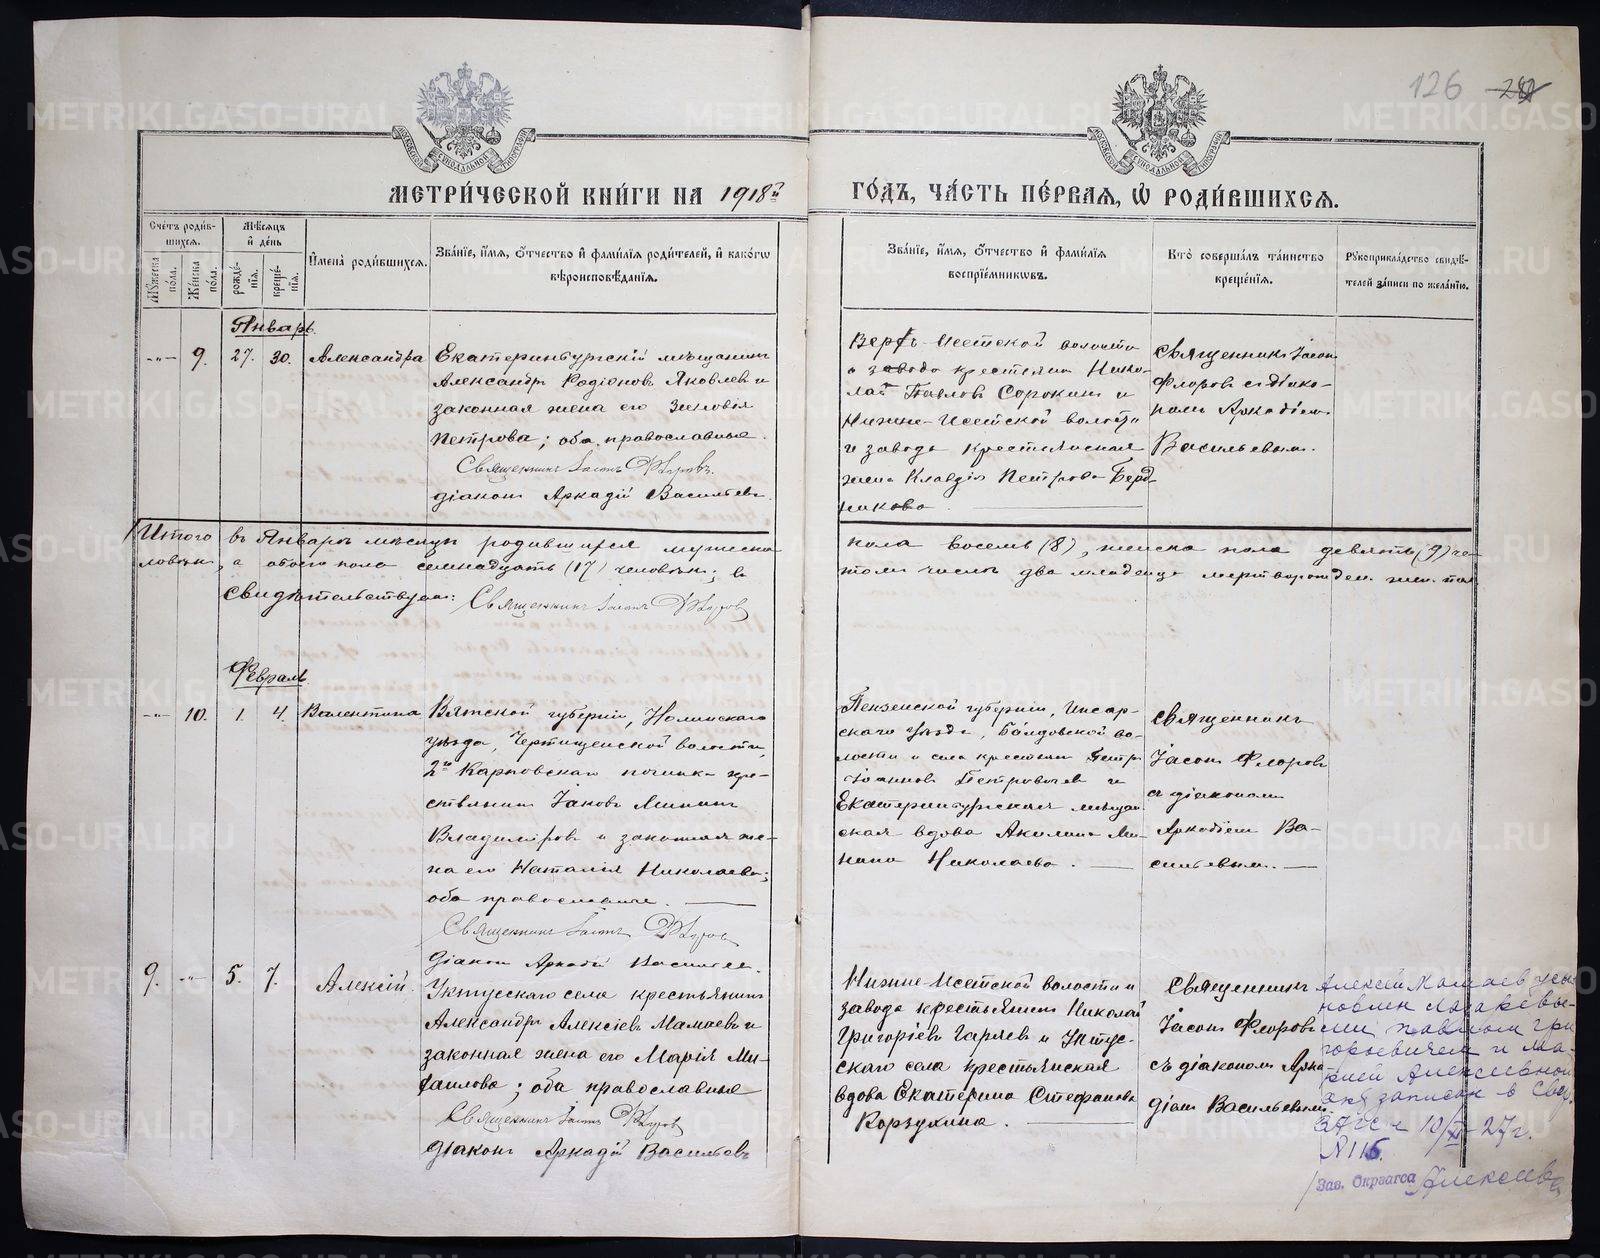 126
МЕТРИ́ЧЕСКОЙ КНИ́ГИ НА 1918й ГО́ДЪ, ЧА́СТЬ ПЕ́РВАЯ, Ѡ РОДИ́ВШИХСЯ.
Сче́тъ роди́в-
шихся.
Мѣ́сяцъ
и де́нь
Му́жеска
по́ла.
Же́нска
по́ла.
рожде́-
нія.
креще́-
нія.
Имена̀ роди́вшихся.
Зва́ніе, и́мя, о́тчество и фами́лія роди́телей, и како́гѡ
вѣроисповѣ́данія.
Зва́ніе, и́мя, о́тчество и фами́лія
воспрїе́мникѡвъ.
Кто̀ соверша́лъ та́инство
креще́нія.
Рукоприкла́дство свидѣ́-
телей за́писи по жела́нію.
Январь.
-„- 9. 27. 30. Александра
Екатеринбургскій мѣщанинъ
Александръ Родіоновъ Яковлевъ и
законная жена его Зиновія
Петрова; оба православные.
Священникъ Іасонъ Флоровъ.
діаконъ Аркадій Васильевъ.
Верхъ-Исетской волости
и завода крестьянинъ Нико-
лай Павловъ Сорокинъ и
Нижне-Исетской волости
и завода крестьянская
жена Клавдія Петрова Берд-
никова.
Священникъ Іасонъ
Флоровъ с діако-
номъ Аркадіемъ
Васильевым.
Итого въ Январѣ мѣсяцѣ родившихся мужеска пола восемь (8), женска пола девять (9) че-
ловѣкъ, а обоего пола семнадцать (17) человѣкъ; въ томъ числѣ два младенца мертворожден. жен. пол.
Свидѣтельствуемъ: Священникъ Іасонъ Флоровъ
Февраль.
-„- 10. 1. 4. Валентина
Вятской губерніи, Нолинскаго
уѣзда, Чертищенской волости,
2го Карповскаго починка кре-
стьянинъ Іаковъ Мининъ
Владиміровъ и законная же-
на его Наталія Николаева;
оба православные.
Священникъ Іасонъ Флоровъ
Діаконъ Аркадій Васильевъ.
Пензенской губерніи, Инсар-
скаго уѣзда, Болдовской во-
лости и села крестьянинъ Петръ
Іоанновъ Петровичевъ и
Екатеринбургская мѣщан-
ская вдова Акилина Ми-
нина Николаева.
Священникъ
Іасонъ Флоровъ
съ діакономъ
Аркадіем Ва-
сильевым.
9. -„- 5. 7. Алексій.
Уктусскаго села крестьянинъ
Александръ Алексіевъ Мамаевъ и
законная жена его Марія Ми-
хаилова; оба православные
Священникъ Іасонъ Флоровъ
Діаконъ Аркадій Васильевъ
Нижне-Исетской волости и
завода крестьянинъ Николай
Григоріевъ Гаряевъ и Уктус-
скаго села крестьянская
вдова Екатерина Стефанова
Корзухина.
Священникъ
Іасонъ Флоровъ
съ діакономъ Арка-
діем Васильевым.
Алексей Мамаев усы-
новлен
Павлом Гри
горьевичем и Ма-
рией Алексеевной
записан в
ЗАГСе 10/XI-27 г.
N 116.
Зав. Окрзагса Алексеев